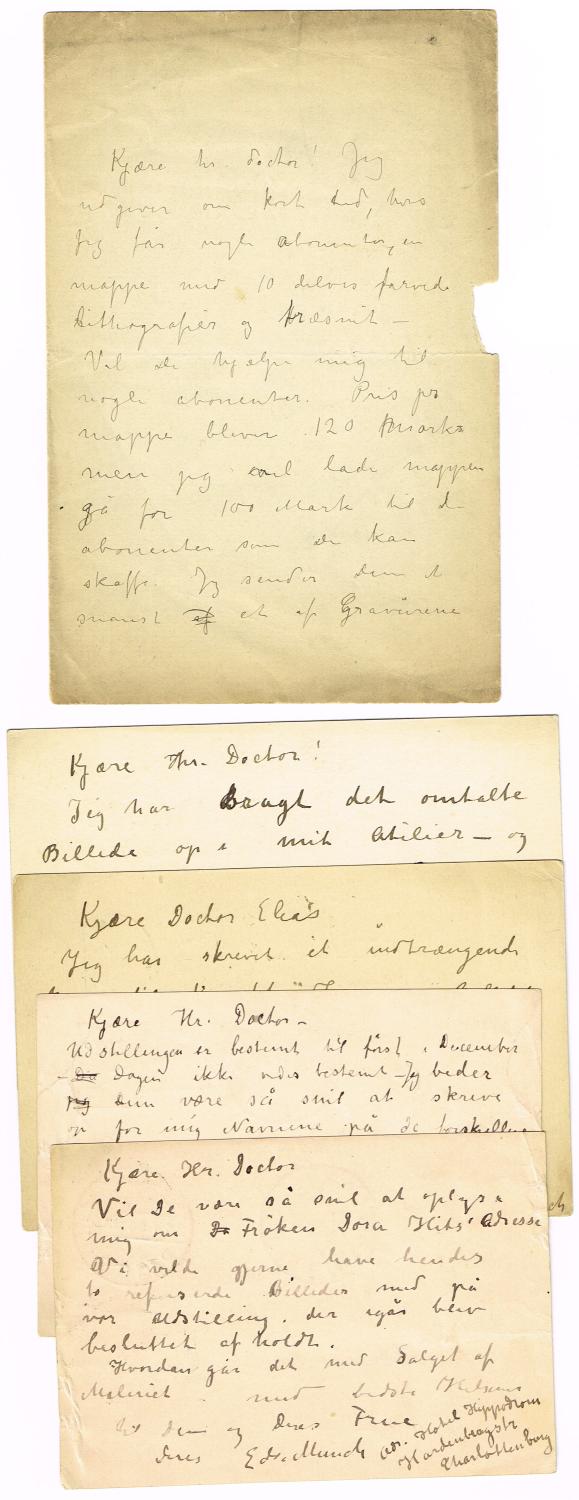 Kjære hr. doctor! Jeg
udgiver om kort tid, hvis
jeg får nogle abonenter, en
mappe med 10 delvis farvede
Lithografier og træsnit –
Vil De hjælpe mig til
nogle abonenter. Pris pr
mappe bliver 120 Mark
men jeg vil lade mappen
gå for 100 Mark til de
abonenter som De kan
skaffe. Jeg sender Dem et
snarest et af Gravürene
Kjære Hr. Doctor!
Jeg har Bragt det omtalte
Billede op i mit Atilier – og
Kjære Doctor Elias
Jeg har skrevet et indtrængende
Kjære Hr. Doctor –
Udstillingen er bestemt til først i December
– Dagen ikke endes bestemt – Jeg beder
Dem være så snil at skrive
op for mig Navnene på de
Kjære Hr. Doctor
Vil De være så snil at oplyse
mig om Fröken Dora Hitz' Adresse
Vi vilde gjerne have hendes
to refuserde Billeder med på
vor Udstilling, der igår blev
besluttet afholdt.
Hvordan går det med Salget af
Maleriet – med bedste Hilsen
til Dem og Deres Frue
Deres Edv. Munch
Adr. Hotel Hippodrom
Hardenbergstr
Charlottenburg